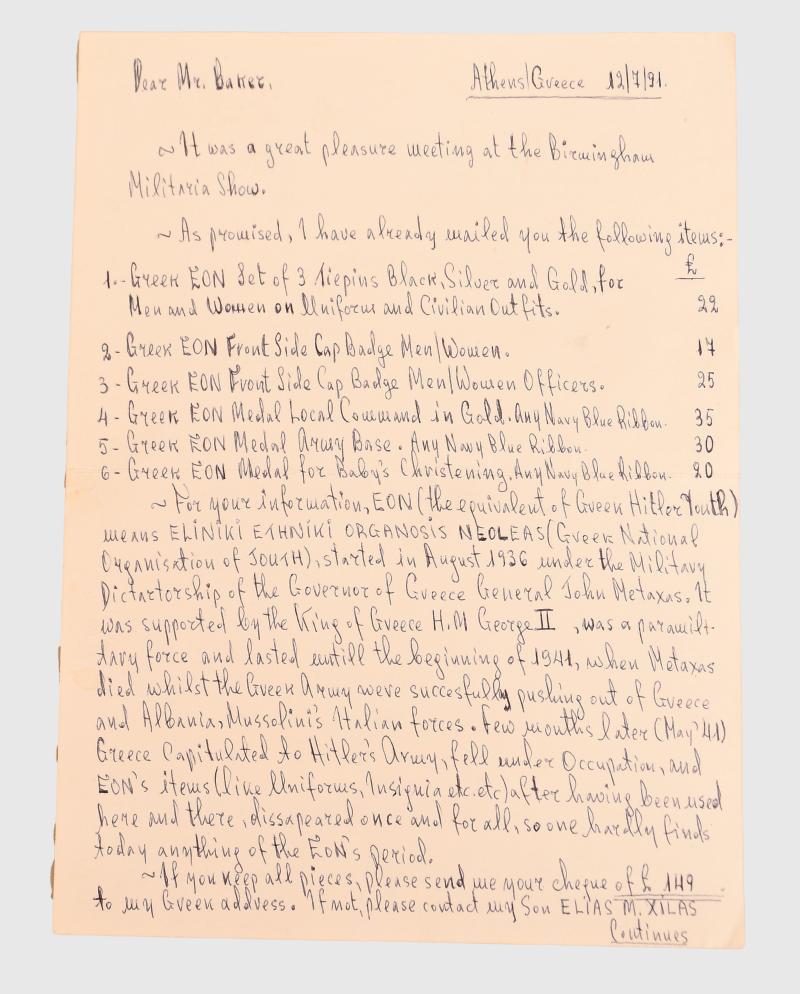 Dear Mr. Baker,
Athens/Greece 12/7/91.
~ It was a great pleasure meeting at the Birmingham
Militaria Show.
~ As promised, I have already mailed you the following items:-
£
1.- Greek EON Set of 3 Tiepins Black, Silver and Gold, for
Men and Women on Uniforms and Civilian Outfits. 22
2- Greek EON Front Side Cap Badge Men/Women. 17
3- Greek EON Front Side Cap Badge Men/Women Officers. 25
4- Greek EON Medal Local Command in Gold. Any Navy Blue Ribbon. 35
5- Greek EON Medal Army Base. Any Navy Blue Ribbon. 30
6- Greek EON Medal for Baby's Christening. Any Navy Blue Ribbon. 20
~ For your information, EON (the equivalent of Greek Hitler Youth)
means ELINIKI ETHNIKI ORGANOSIS NEOLEAS (Greek National
Organisation of YOUTH), started in August 1936 under the Military
Dictartorship of the Governor of Greece General John Metaxas. It
was supported by the King of Greece H.M George II , was a paramili-
tary force and lasted untill the beginning of 1941, when Metaxas
died whilst the Greek Army were succesfully pushing out of Greece
and Albania, Mussolini's Italian forces. Few months later (May '41)
Greece Capitulated to Hitler's Army, fell under Occupation, and
EON's items (like Uniforms, Insignia etc.etc) after having been used
here and there, dissapeared once and for all, so one hardly finds
today anything of the EON's period.
~ If you keep all pieces, please send me your cheque of £ 149
to my Greek address. If not, please contact my Son ELIAS M. XILAS
Continues